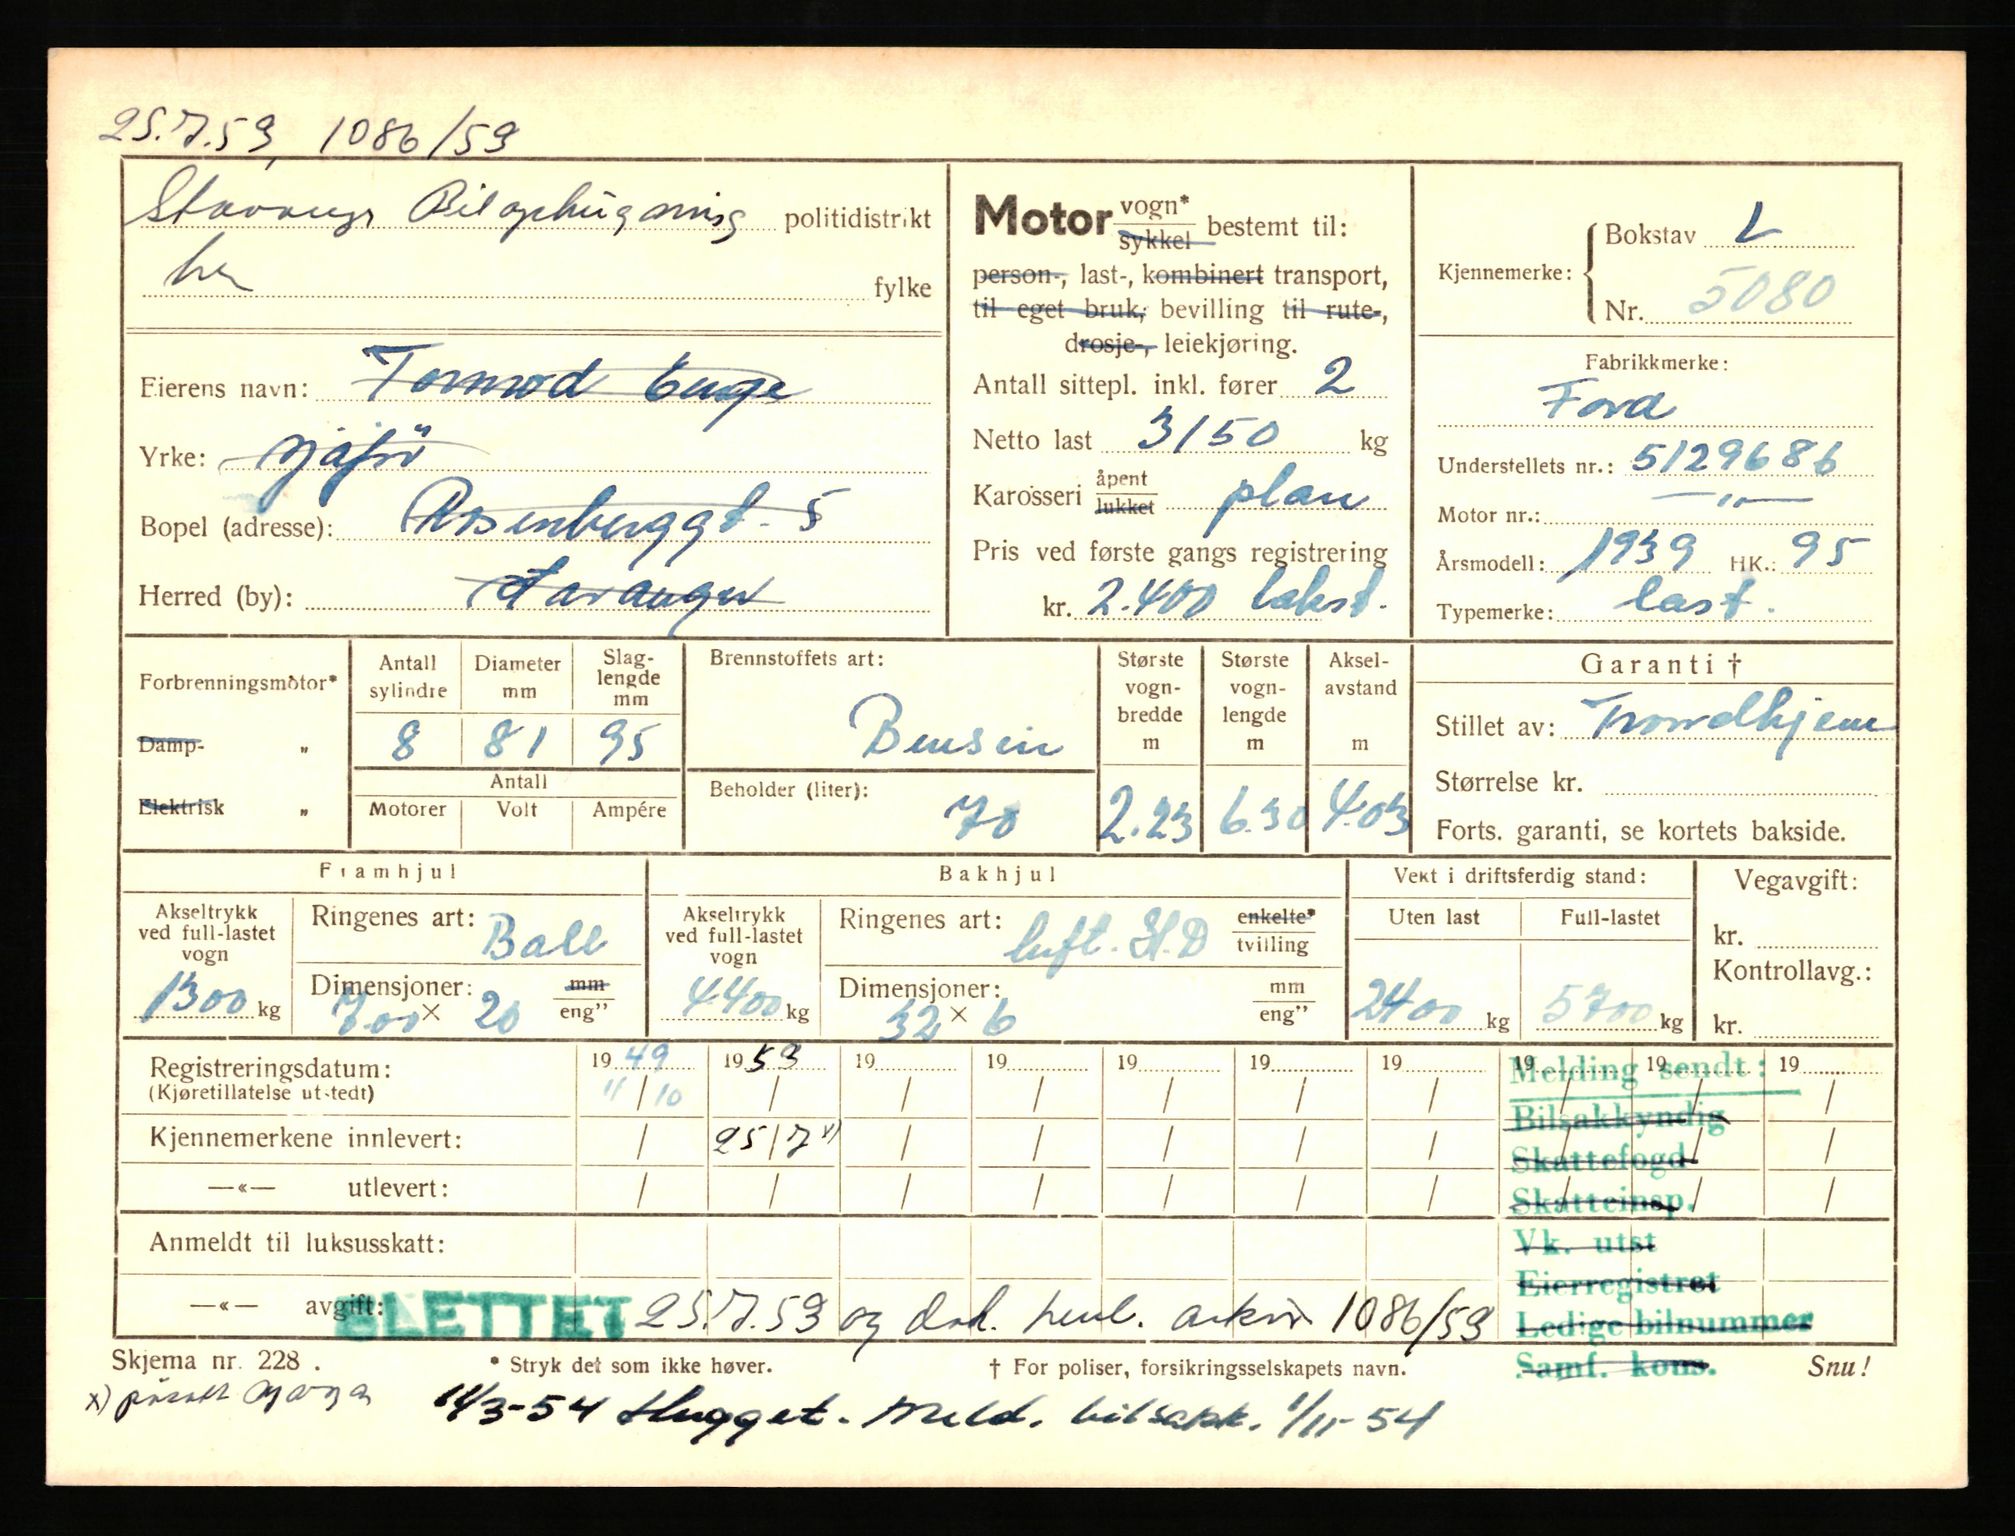 25.7.53, 1086/53
Stavanger Bilophugning politidistrikt
her fylke
Eierens navn: Tormod Enge
Yrke: sjåfør
Bopel (adresse): Rosenberggt. 5
Herred (by): Stavanger
Motor vogn* sykkel bestemt til:
person-, last-, kombinert transport,
til eget bruk, bevilling til rute-,
drosje-, leiekjøring.
Antall sittepl. inkl. fører 2
Netto last 3150 kg
Karosseri åpent lukket plan
Pris ved første gangs registrering
kr. 2.400 takst.
Kjennemerke: Bokstav L
Nr. 5080
Fabrikkmerke:
Ford
Understellets nr.: 5129686
Motor nr.: —"—
Årsmodell: 1939 HK.: 95
Typemerke: last.
Forbrenningsmotor*
Damp- "
Elektrisk "
Antall sylindre
Diameter mm
Slag-lengde mm
8 81 95
Antall
Motorer Volt Ampére
Brennstoffets art:
Bensin
Beholder (liter):
70
Største vogn-bredde m
2.23
Største vogn-lengde m
6.30
Aksel-avstand m
4.03
Garanti †
Stillet av: Trondhjem
Størrelse kr.
Forts. garanti, se kortets bakside.
Framhjul
Akseltrykk ved full-lastet vogn
1300 kg
Ringenes art: Ball
Dimensjoner: mm eng"
7.00 × 20
Bakhjul
Akseltrykk ved full-lastet vogn
4400 kg
Ringenes art: luft. H.D enkelte* tvilling
Dimensjoner: mm eng"
32 × 6
Vekt i driftsferdig stand:
Uten last Full-lastet
2400 kg 5700 kg
Vegavgift:
kr.
Kontrollavg.:
kr.
Registreringsdatum: 19 49 19 53 19 19 19 19 19 19 19 19
(Kjøretillatelse utstedt) 11/10 / / / / / / / / /
Kjennemerkene innlevert: / 25/7 x) / / / / / / / /
—«— utlevert: / / / / / / / / / /
Anmeldt til luksusskatt:
—«— avgift:
SLETTET 25.7.53 og dok. henl. arkiv 1086/53
Melding sendt:
Bilsakkyndig
Skattefogd
Skatteinsp.
Vk. utst
Eierregistret
Ledige bilnummer
Samf. kons.
Skjema nr. 228.
* Stryk det som ikke høver.
† For poliser, forsikringsselskapets navn.
Snu!
x)
11/3-54 Hugget. Meld. bilsakk. 1/11-54